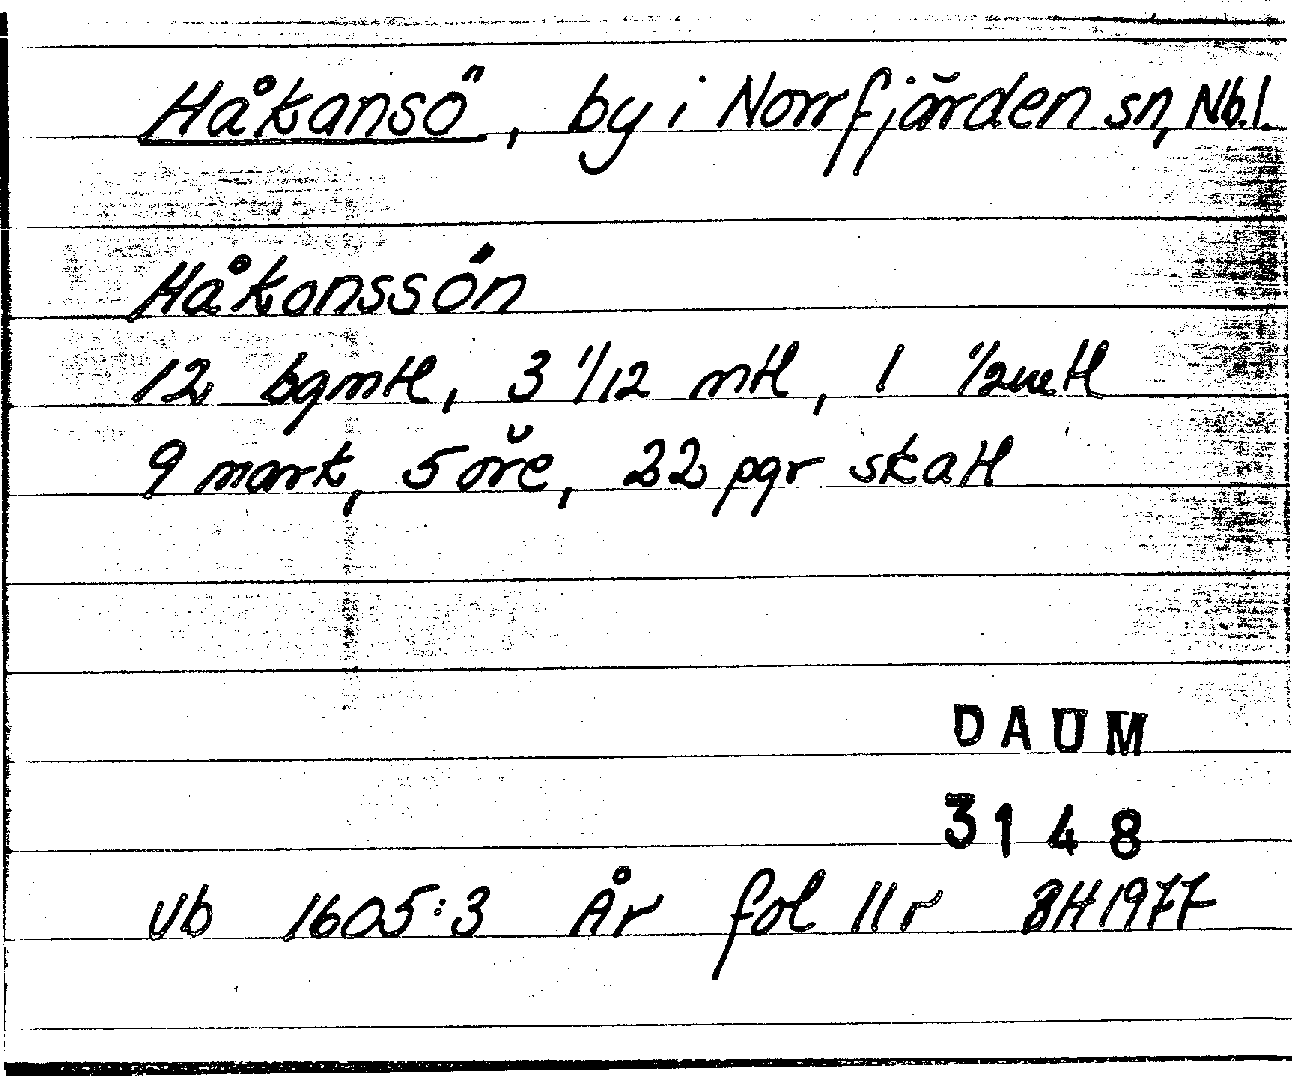 Håkansö, by i Norrfjärden sn, Nb.l.
Håkanssön
12 bgmtl, 3 1/12 mtl, 1 1/2 mtl
9 mark, 5 öre, 22 pgr skatt
DAUM
3148
Vb 1605:3 År fol 11r BH1977